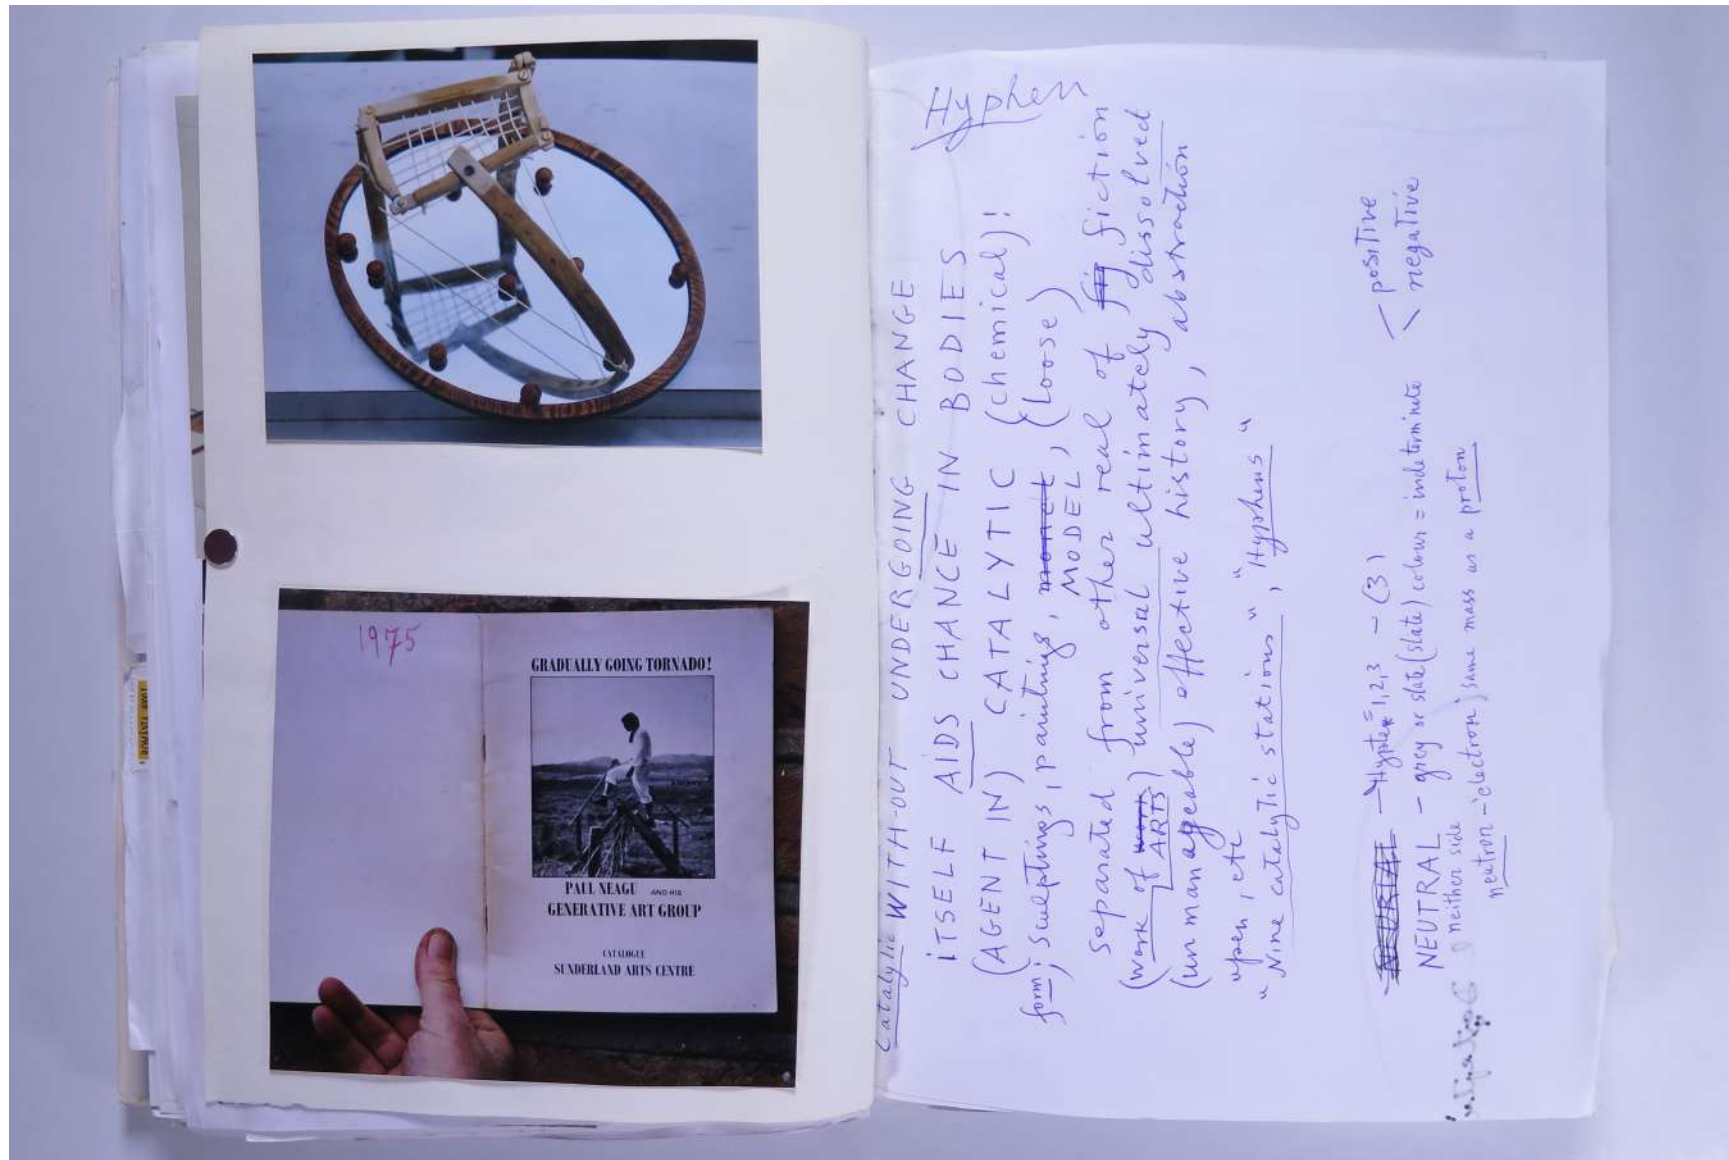 1975
GRADUALLY GOING TORNADO!
PAUL NEAGU AND HIS
GENERATIVE ART GROUP
CATALOGUE
SUNDERLAND ARTS CENTRE
Hyphen
Catalytic WITH-OUT UNDERGOING CHANGE
ITSELF AIDS CHANCE IN BODIES
(AGENT IN) CATALYTIC (chemical);
form; sculptings, painting, MODEL, (loose)
separated from other real of fiction
(work of ARTS) universal ultimately dissolved
(unmanageable) effective history, abstraction
open, etc
"Nine catalytic stations", "Hyphens"
NEURAL — 1,2,3 — (3)
NEUTRAL — grey or slate (slate) colour = indeterminate < positive
negative
neither side
neutron — electron; same mass as a proton